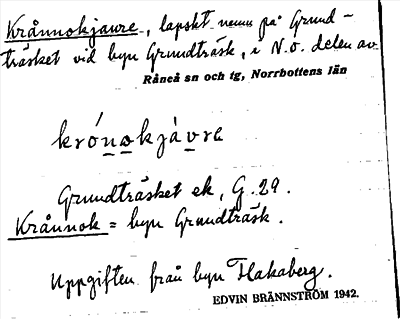 Krånnokjaure, lapskt namn på Grund-
träsket vid byn Grundträsk, i N.O. delen av
Råneå sn och tg, Norrbottens län
krónokjàvre
Grundträsket ek, G.29.
Krånnok = byn Grundträsk.
Uppgiften från byn Flakaberg.
EDVIN BRÄNNSTRÖM 1942.